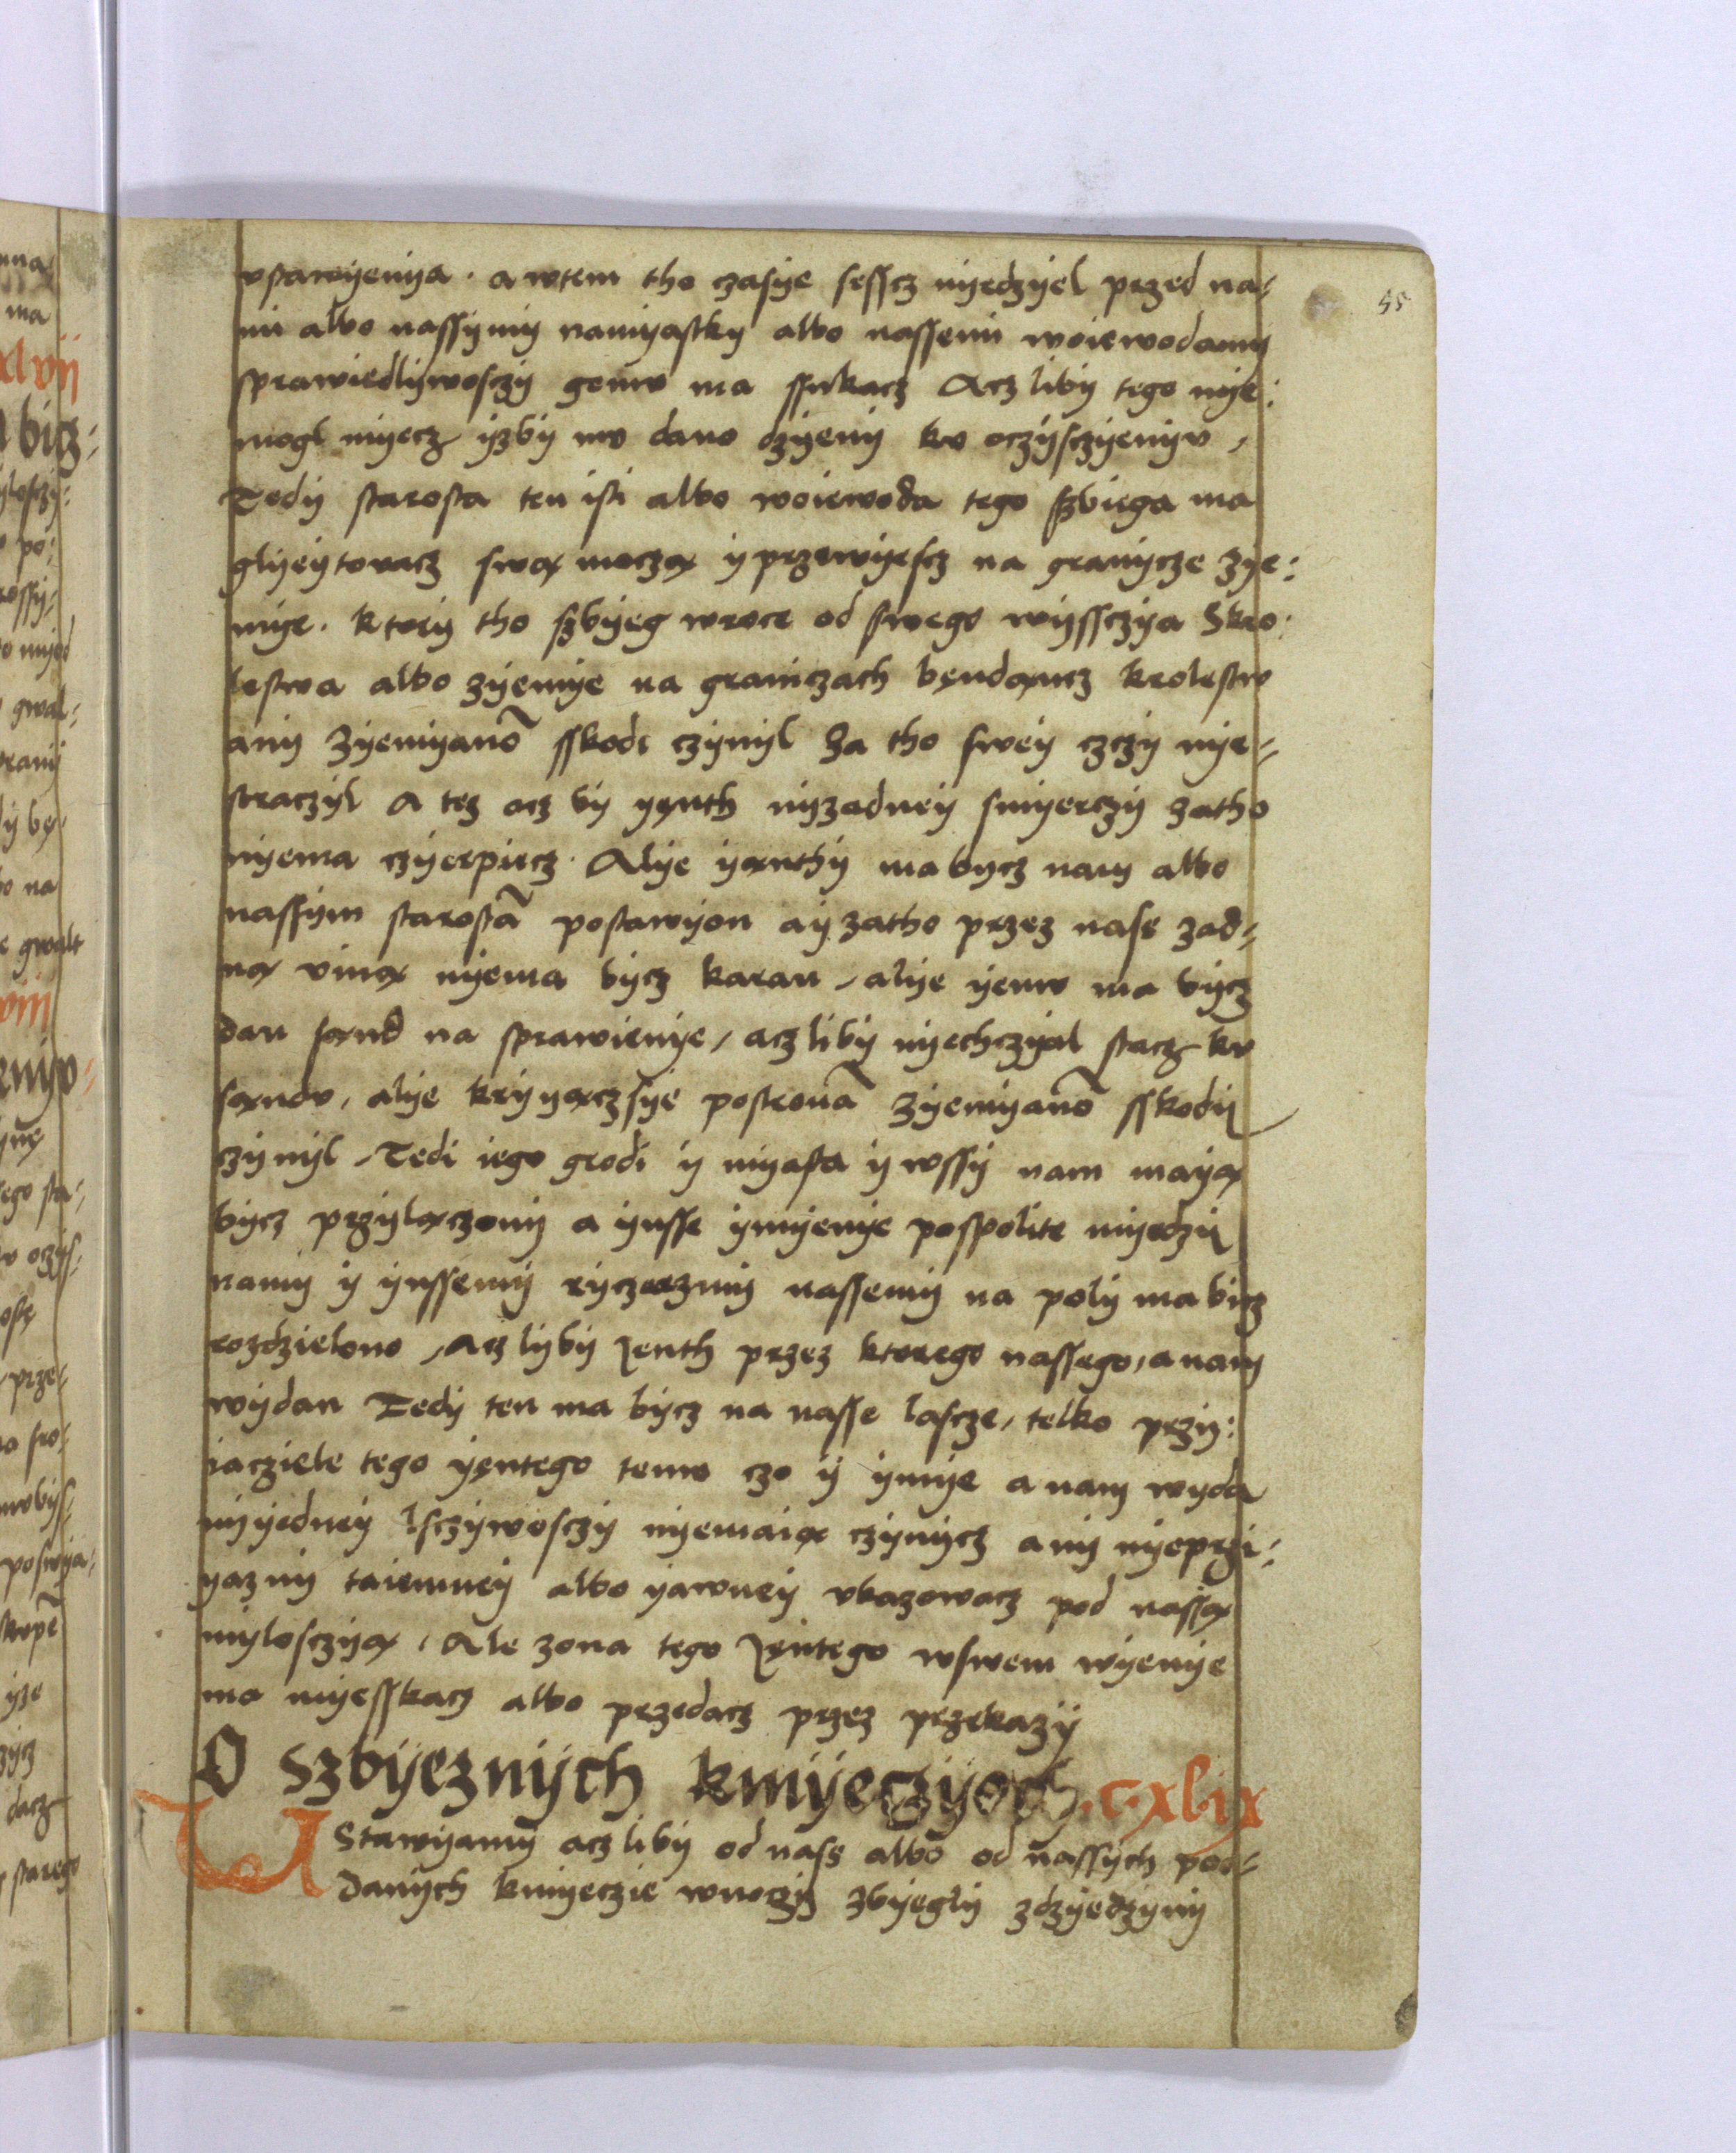 55
vstawyenya · a wtem tho czasye sesscz nyedzyel przed na⸗
mi albo nassymy namyastky albo nassemi woiewodamy
sprawiedlywosczy gemv ma ssukacz Acz liby tego nye:
mogl myecz yzby mv dano dzyeny kv oczysczyenyv /
Tedy starosta ten isti albo woiewoda tego szbiega ma
glyeytovacz swą moczą y przewyescz na granycze zye:
mye. ktory tho szbyeg wroce od swego wyssczya Skro:
lestwa albo zyemye na graniczach będącz krolestw
any zyemyanõ sskodi czynyl za tho swey czczy nye⸗
straczyl A tez acz by yęnth nyzadney smyerczy zatho
nyema czyerpiecz · Alye yąnthy ma bycz nam albo
nassym starostã postawyon ay zatho przez nass zad⸗
ną viną nyema bycz karan / alye yemv ma bycz
dan sąnd na sprawienye / acz liby nyechczyal stacz kv
sąndv, alye kryyączsye postronã zyemyanõ sskody
czynyl / Tedi iego grodi y myasta y wssy nam mayą
bycz przyłączony a ynsse ymyenye pospolite myedzy
namy y ynssemy ryczerzmy nassemy na poly ma bicz
rozdzielono / Acz lyby Jenth przez ktorego nassego, a nam
wydan Tedy ten ma bycz na nasse lascze, telko przy:
iacziele tego yęntego temv czo y ymye a nam wyda
nyyedney lsczywosczy nyemaią czynycz any nyeprzi:
yazny taiemney albo yawney vkazowacz pod nassą
mylosczyą, Ale zona tego Jęntego wswem wyenye
ma myesskacz albo przedacz przez przekazy
O szbyeznych kmyeczyoch .c.xl.ix
W Stawyamy acz liby od nass albo od nassych pod⸗
danych kmyeczie wnoczy zbyegly zdzyedzyny